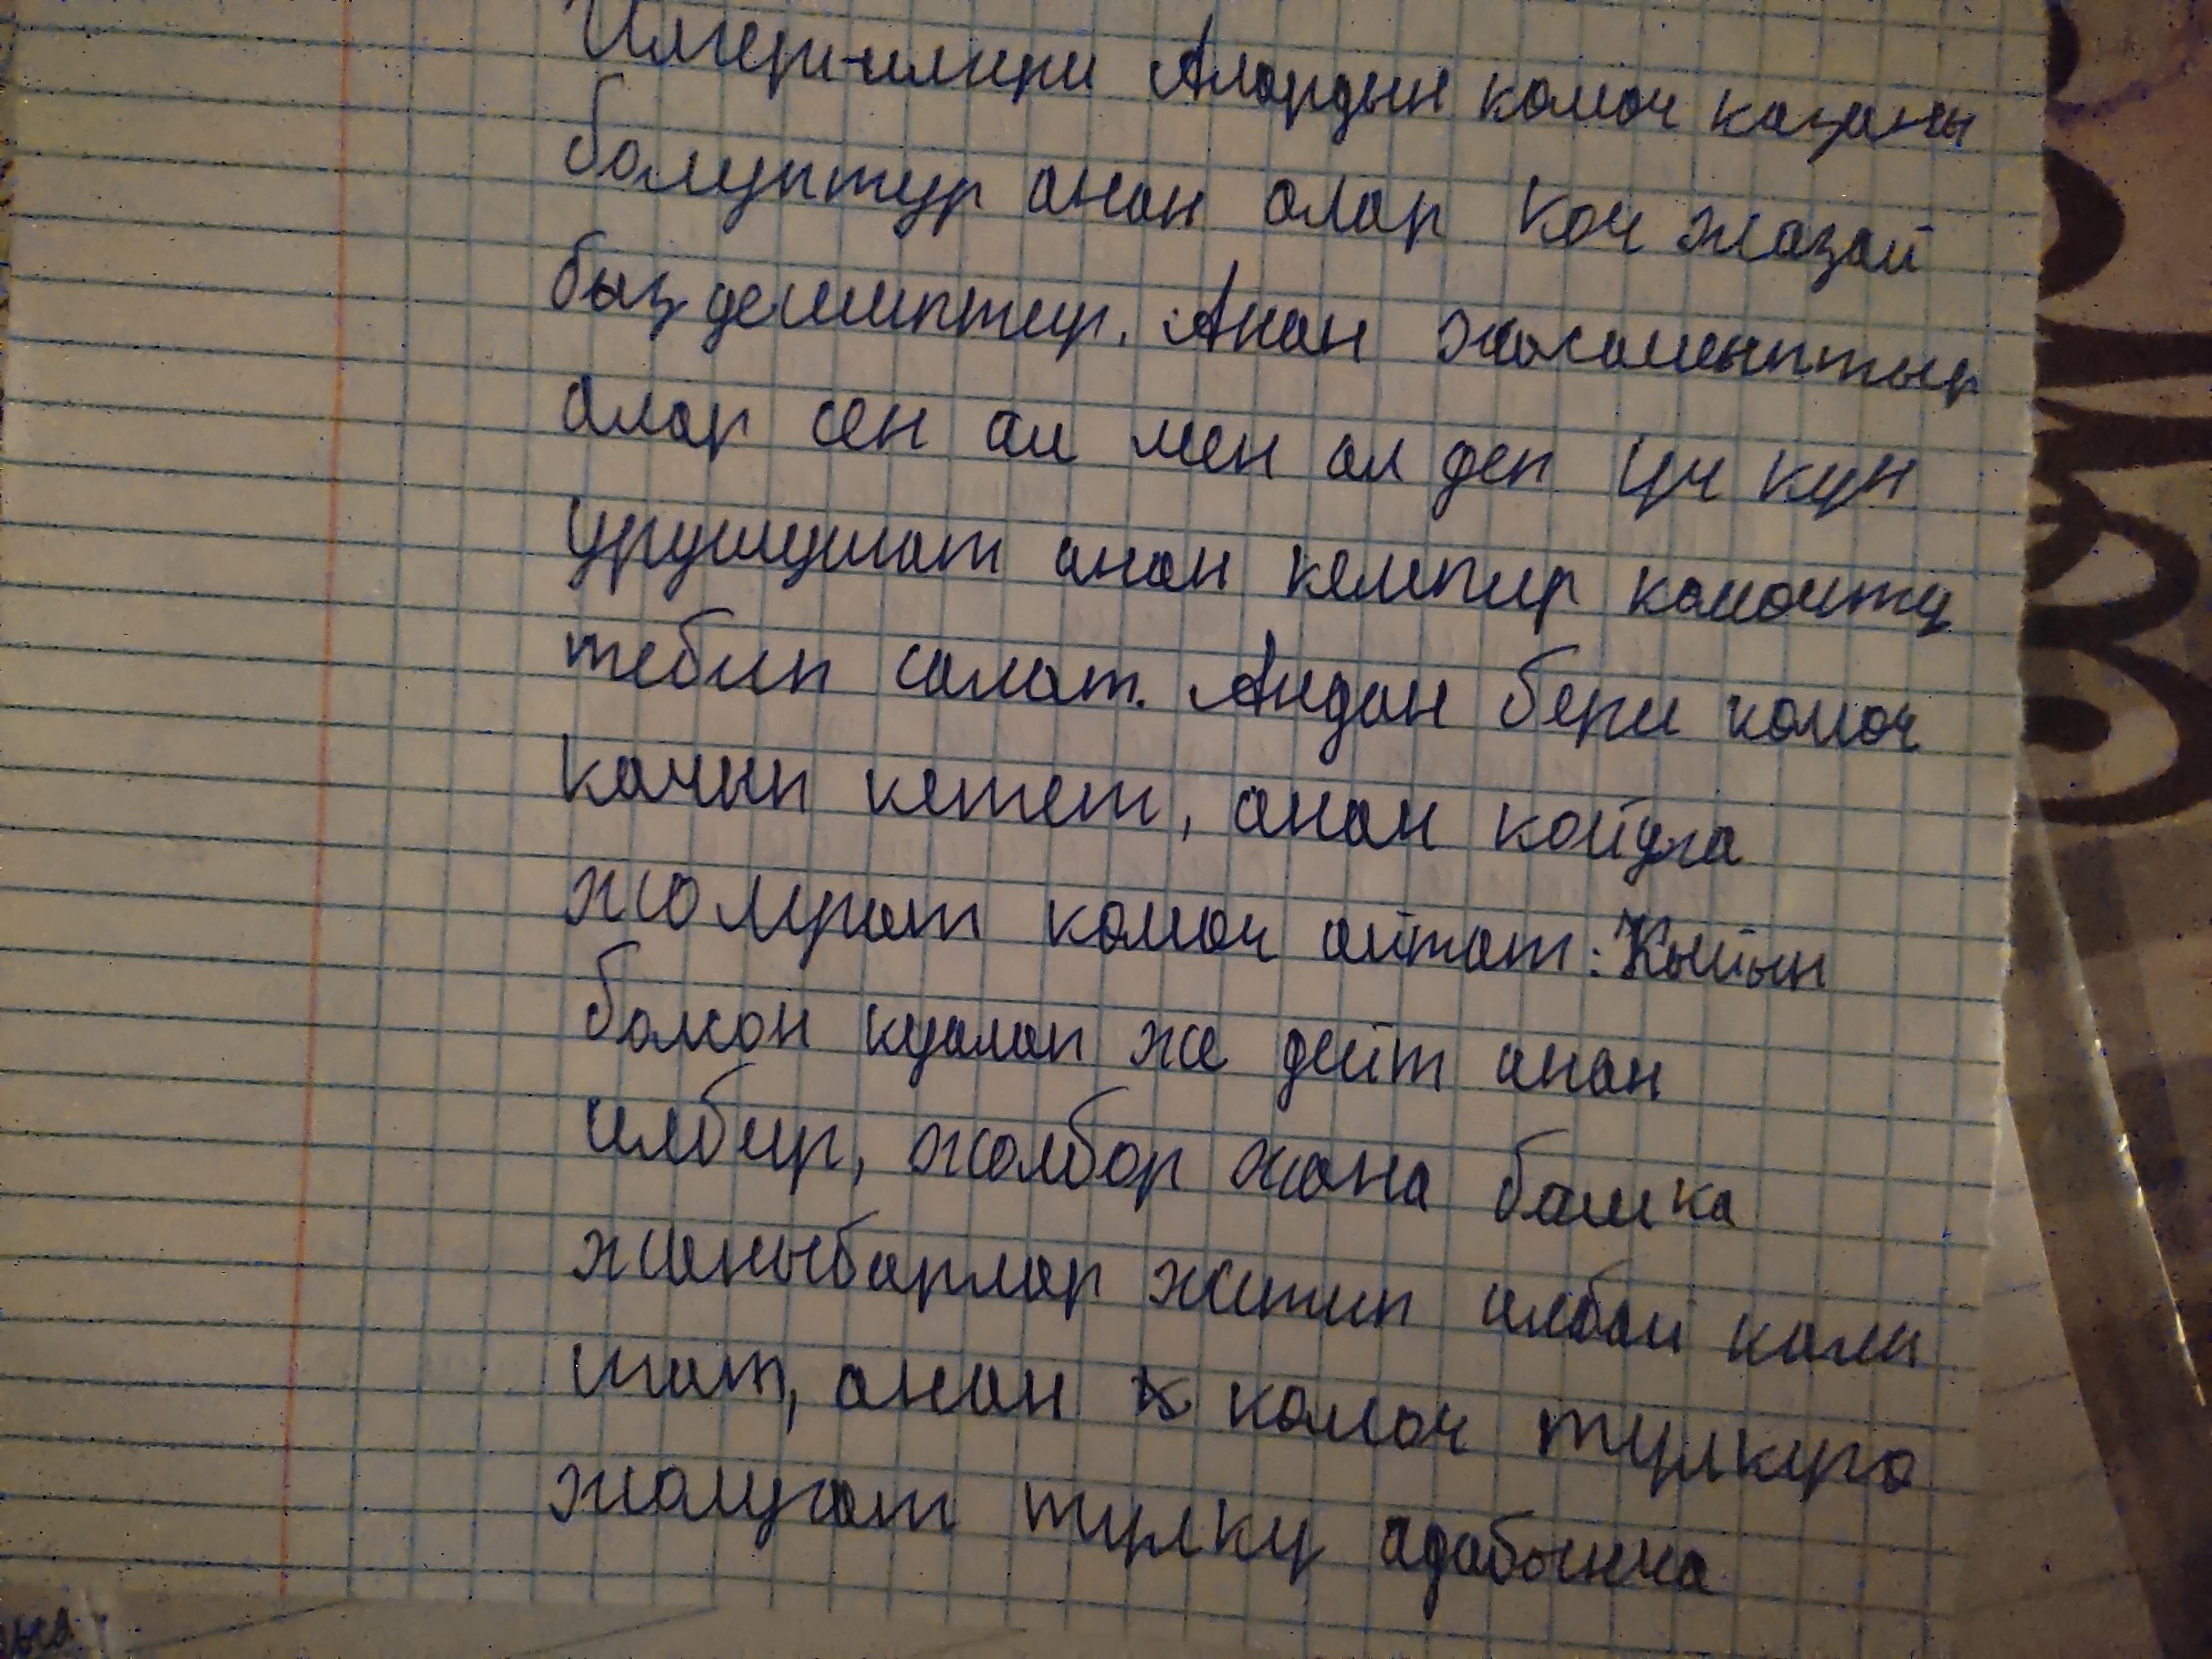 Илгери-илгери Алардын комоч казаны
болуптур анан алар Коч жазай
быз дешиптир. Анан жасашыптыр
алар сен ал мен ал деп үч күн
урушушат анан кемпир комочту
тебип салат. Андан бери комоч
качып кетет, анан койуга
жолугат комоч айтат: Кыйын
болсон куалап же дейт анан
илбир, жолбор жана башка
жаныбарлар житип албай калы
шат, анан комоч тулкуго
жолугат тулку адабынча